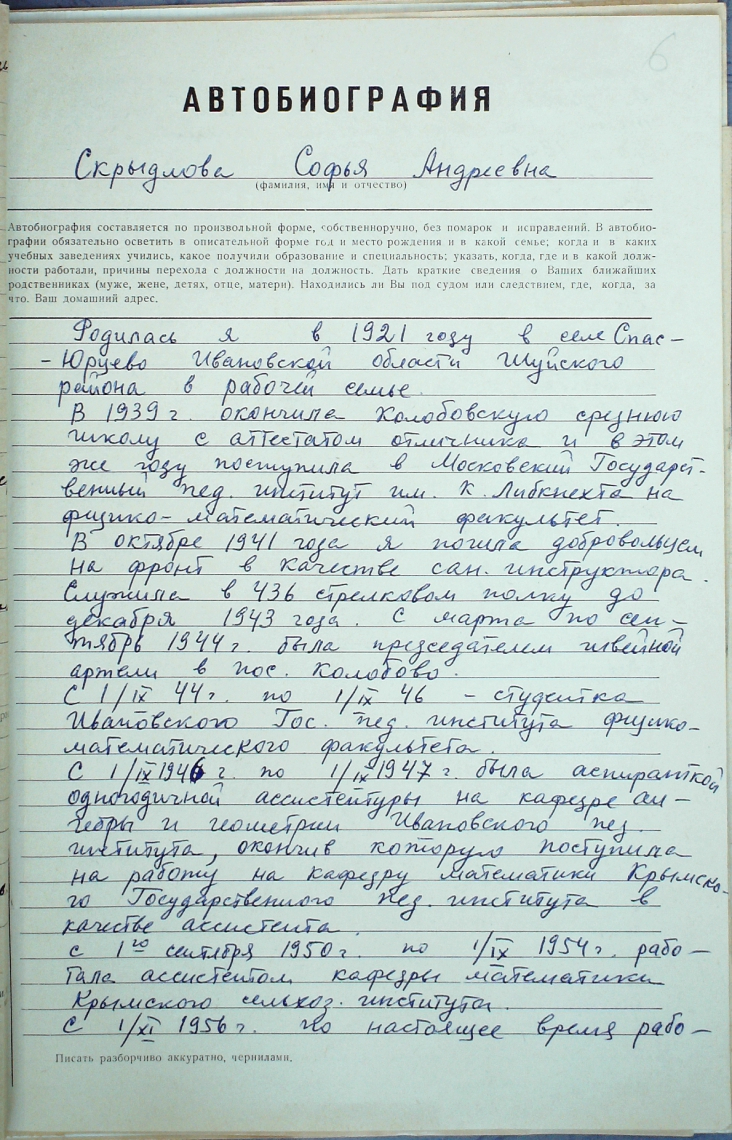 6
АВТОБИОГРАФИЯ
Скрыдлова Софья Андреевна
(фамилия, имя и отчество)
Автобиография составляется по произвольной форме, собственноручно, без помарок и исправлений. В автобио-
графии обязательно осветить в описательной форме год и место рождения и в какой семье; когда и в каких
учебных заведениях учились, какое получили образование и специальность; указать, когда, где и в какой долж-
ности работали, причины перехода с должности на должность. Дать краткие сведения о Ваших ближайших
родственниках (муже, жене, детях, отце, матери). Находились ли Вы под судом или следствием, где, когда, за
что. Ваш домашний адрес.
Родилась я в 1921 году в селе Спас-
-Юрцево Ивановской области Шуйского
района в рабочей семье.
В 1939 г. окончила Колобовскую среднюю
школу с аттестатом отличника и в этом
же году поступила в Московский Государст-
венный пед. институт им. К. Либкнехта на
физико-математический факультет.
В октябре 1941 года я пошла добровольцем
на фронт в качестве сан. инструктора.
Служила в 436 стрелковом полку до
декабря 1943 года. С марта по сен-
тябрь 1944 г. была председателем швейной
артели в пос. Колобово.
С 1/IX 44 г. по 1/IX 46 - студентка
Ивановского Гос. пед. института физико-
математического факультета.
С 1/IX 1946 г. по 1/IX 1947 г. была аспиранткой
одногодичной ассистентуры на кафедре ал-
гебры и геометрии Ивановского пед.
института, окончив которую поступила
на работу на кафедру математики Крымско-
го Государственного пед. института в
качестве ассистента.
с 1го сентября 1950 г. по 1/IX 1954 г. рабо-
тала ассистентом кафедры математики
Крымского сельхоз. института.
С 1/XI 1956 г. по настоящее время рабо-
Писать разборчиво аккуратно, чернилами.